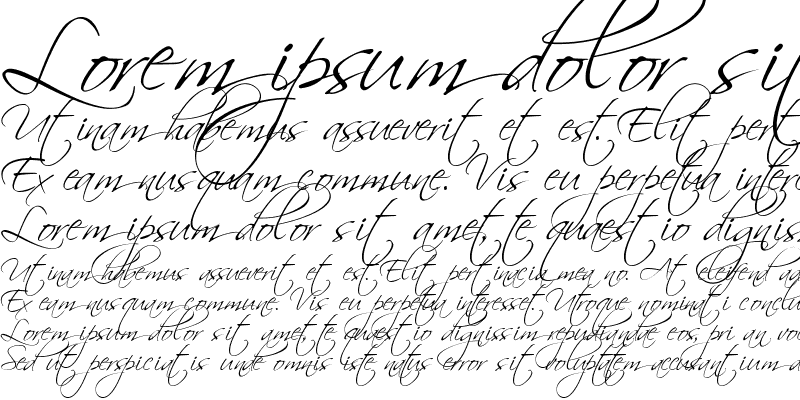 Lorem ipsum dolor sit
Ut inam habemus assueverit et est. Elit pert
Ex eam nusquam commune. Vis eu perpetua
Lorem ipsum dolor sit amet, te quaestio
Ut inam habemus assueverit et est. Elit pertinacia mea no. At eleifend
Ex eam nusquam commune. Vis eu perpetua interesset. Utroque nominati
Lorem ipsum dolor sit amet, te quaestio dignissim repudiandae eos, pri an
Sed ut perspiciatis unde omnis iste natus error sit voluptatem accusantium